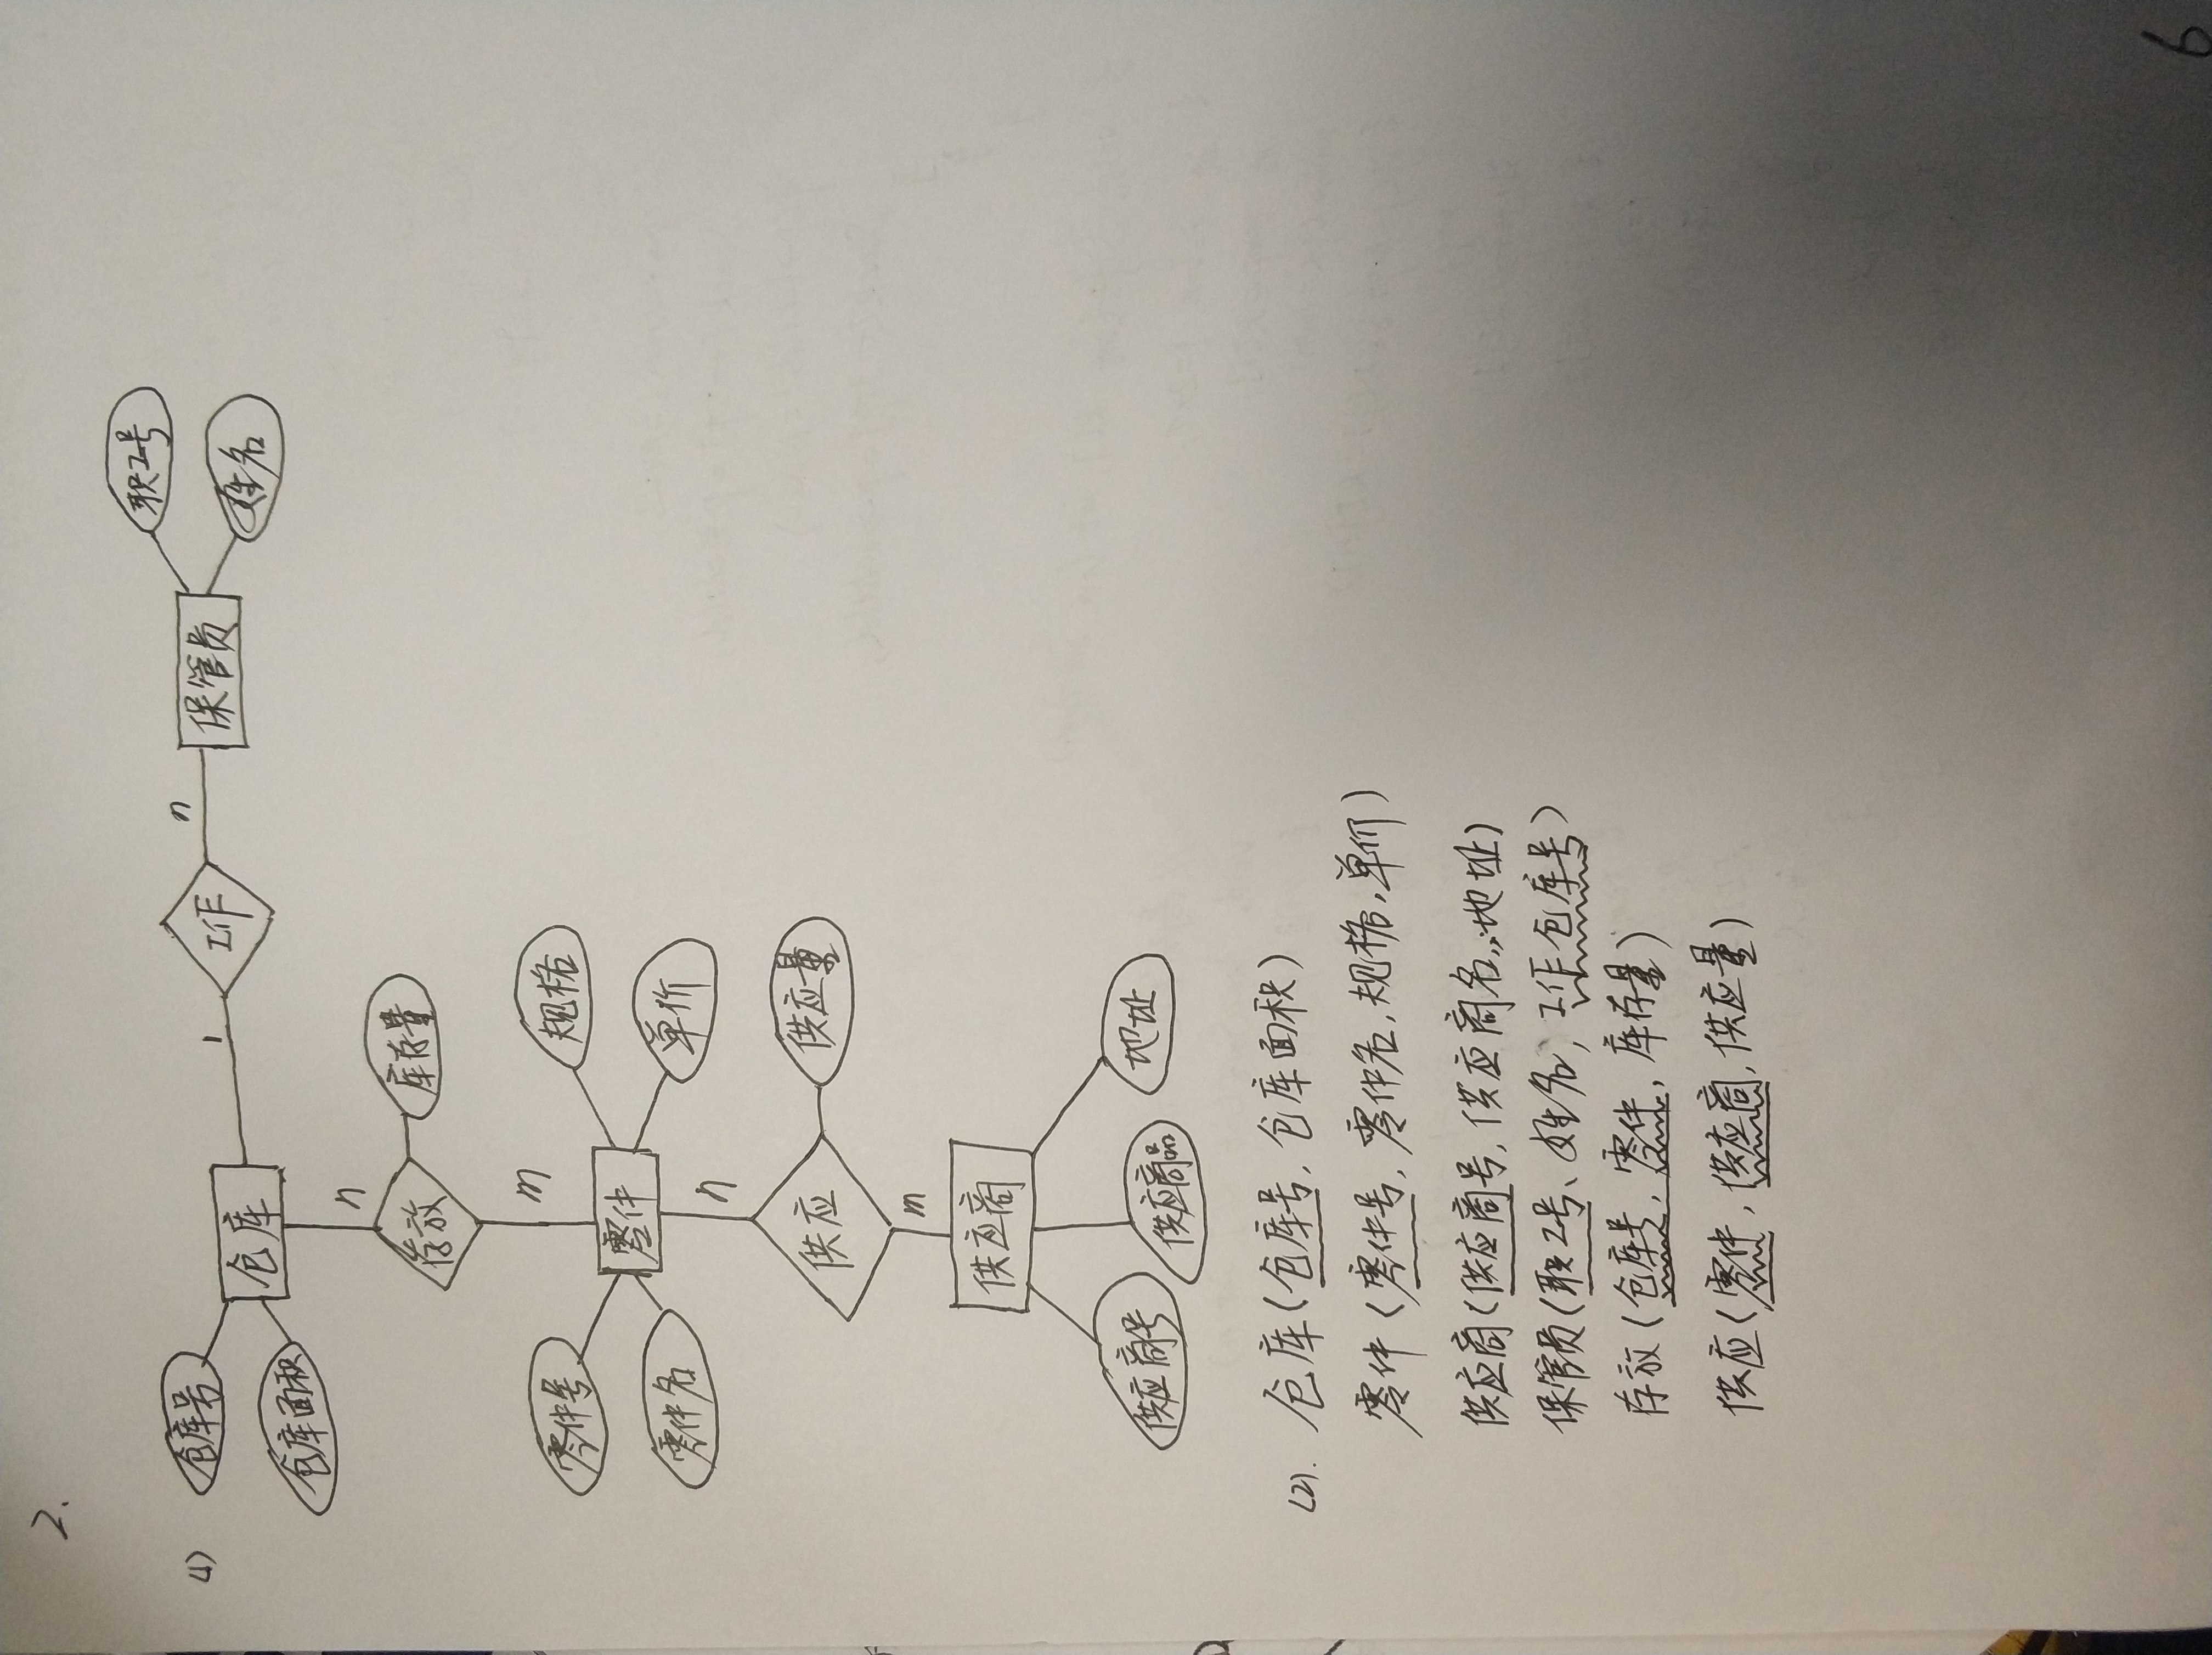 2.
(1)
仓库号
仓库面积
仓库
1
工作
n
保管员
职工号
姓名
n
存放
库存量
m
零件号
零件名
零件
规格
单价
n
供应
供应量
m
供应商
供应商号
供应商品
地址
(2). 仓库(仓库号, 仓库面积)
零件(零件号, 零件名, 规格, 单价)
供应商(供应商号, 供应商名, 地址)
保管员(职工号、姓名, 工作仓库号)
存放(仓库号, 零件, 库存量)
供应(零件, 供应商, 供应量)
6